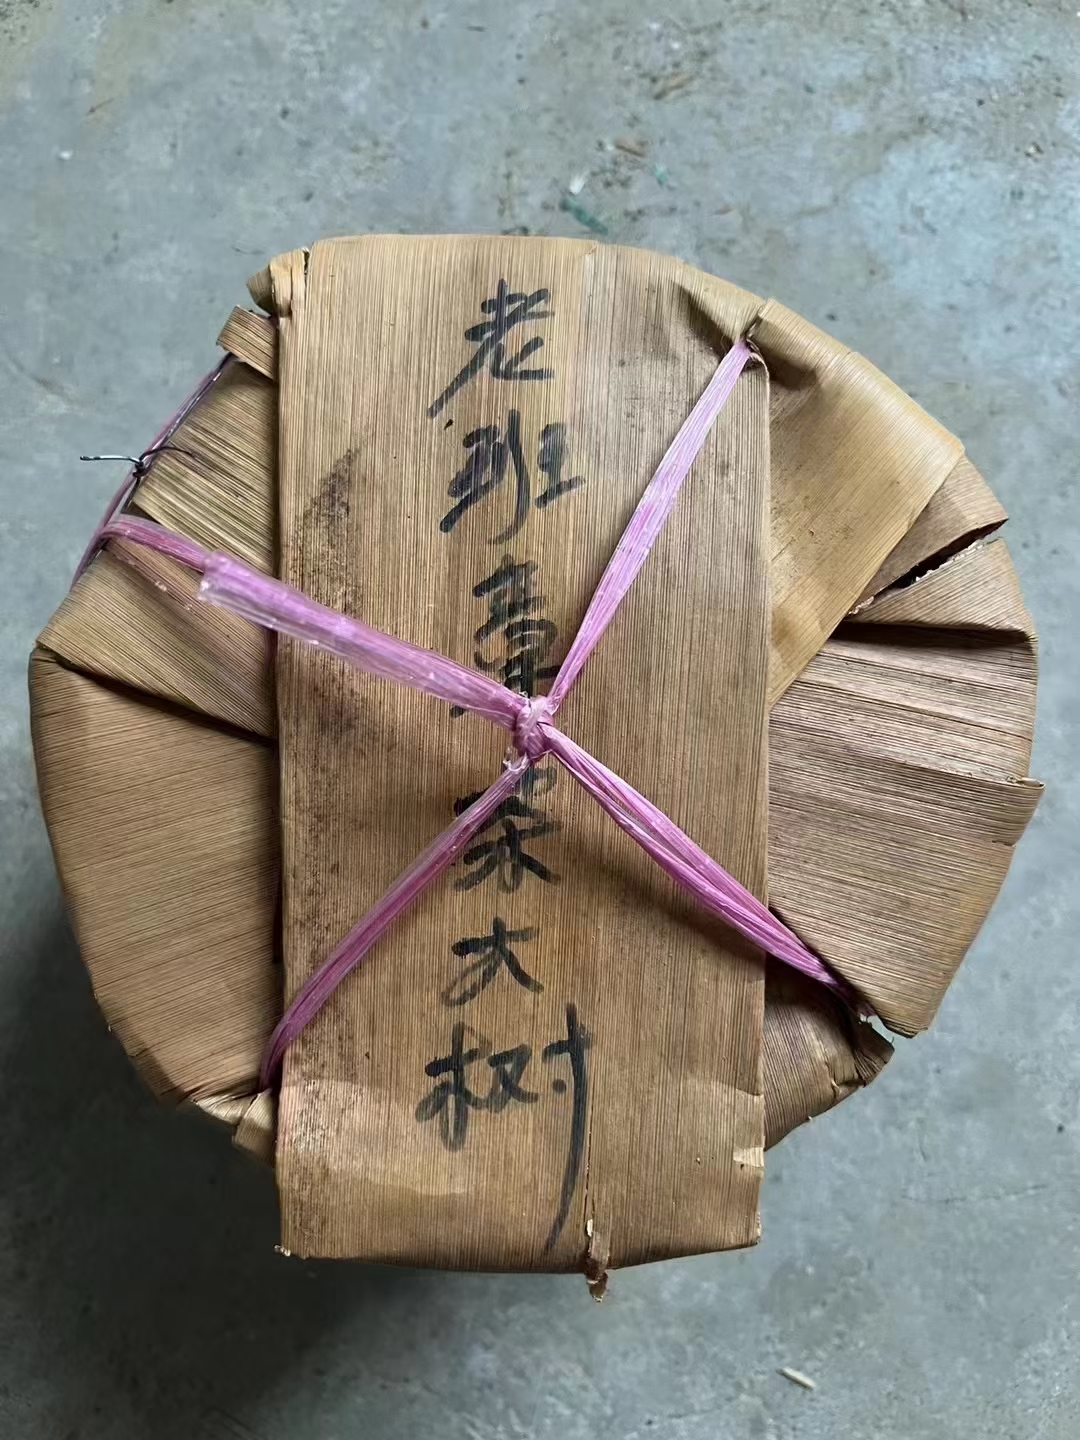 老班章茶大树